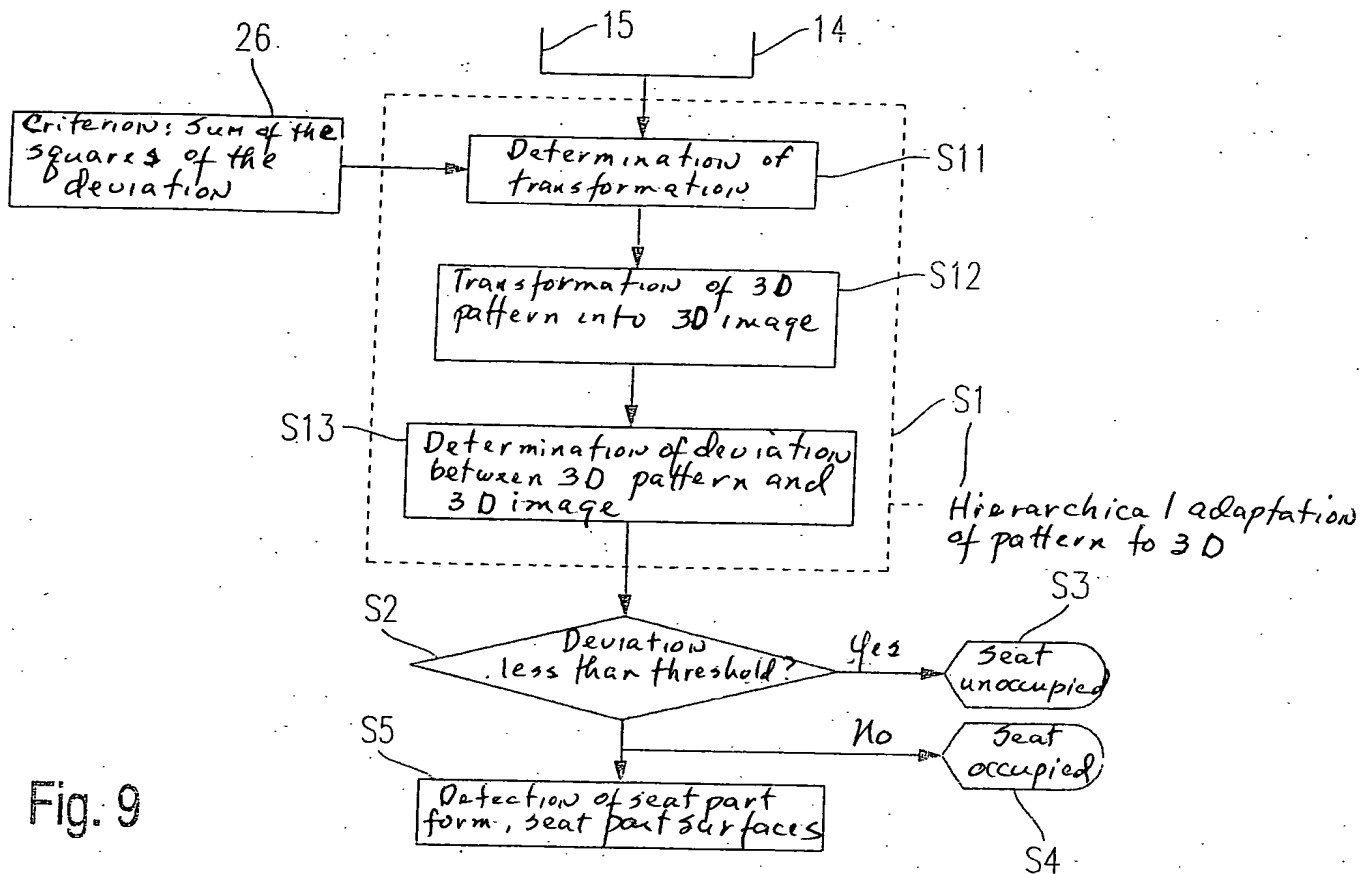 15
14
26
Criterion: Sum of the
squares of the
deviation
Determination of
transformation
S11
Transformation of 3D
pattern into 3D image
S12
S13
Determination of deviation
between 3D pattern and
3D image
S1
Hierarchical adaptation
of pattern to 3D
S2
Deviation
less than threshold?
Yes
S3
Seat
unoccupied
No
Seat
occupied
S4
S5
Detection of seat part
form, seat part surfaces
Fig. 9